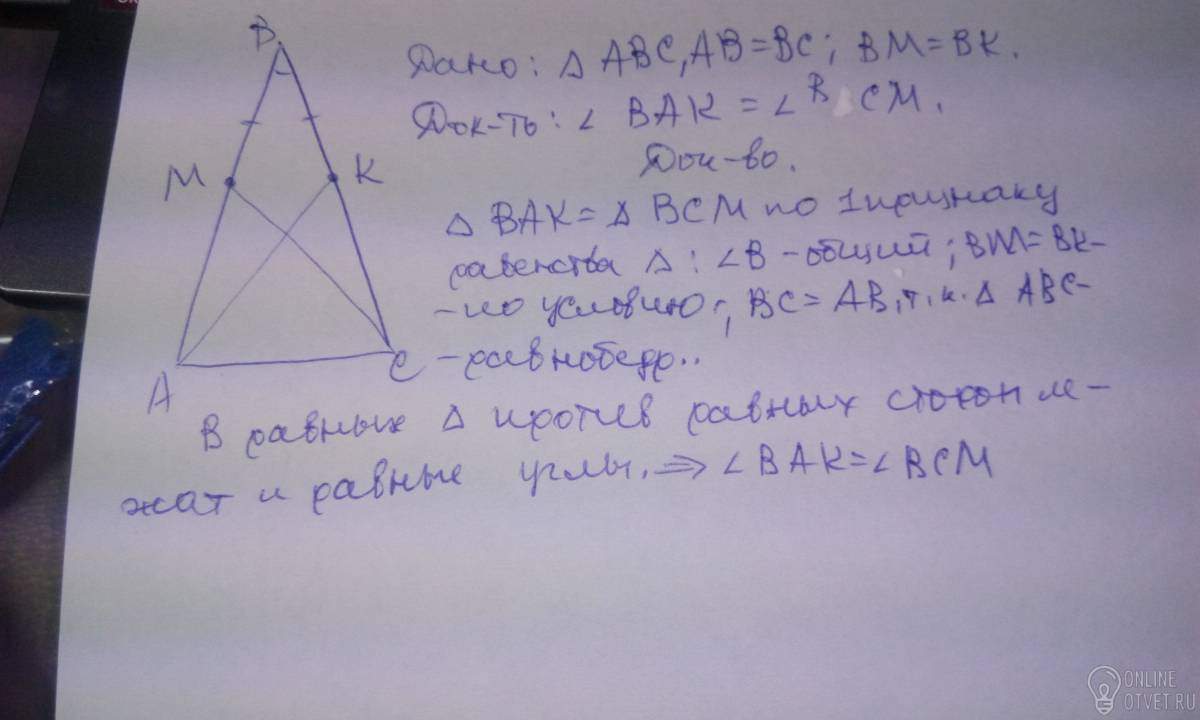 B
M
K
A
C
Дано: △ ABC, AB=BC; BM=BK.
Док-ть: ∠ BAK = ∠ B CM.
Док-во.
△ BAK = △ BCM по 1 признаку
равенства △: ∠B - общий; BM=BK-
-по условию; BC = AB, т.к. △ ABC-
-равнобедр..
В равных △ против равных сторон ле-
жат и равные углы. ⇒ ∠BAK=∠BCM
ONLINE
OTVET.RU